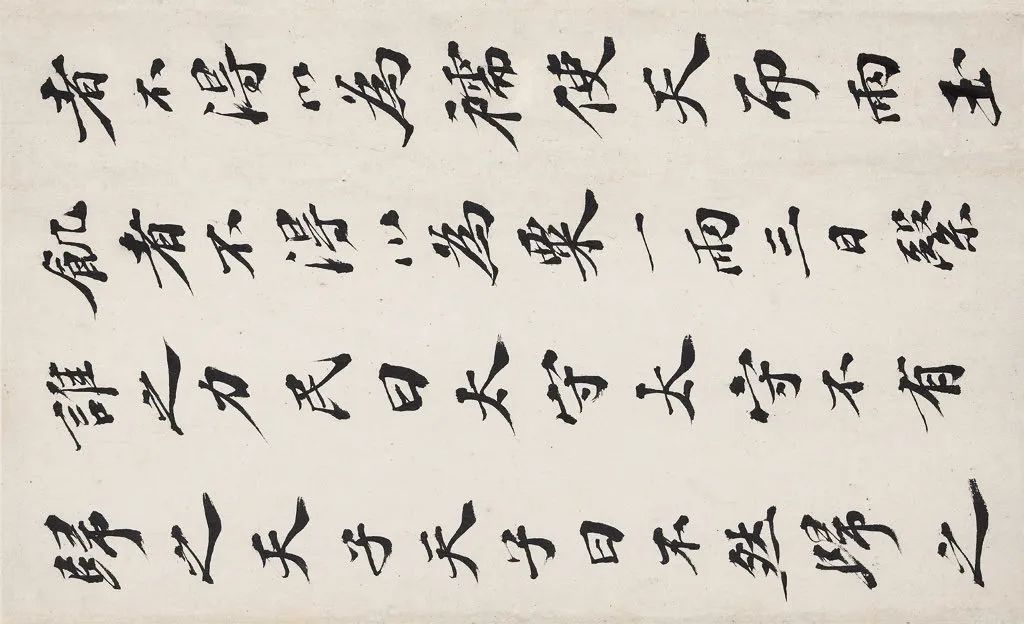 者不得以為襦使天而雨玉
飢者不得以為粟一雨三日繄
誰之力民曰太守太守不有
歸之天子天子曰不然歸之